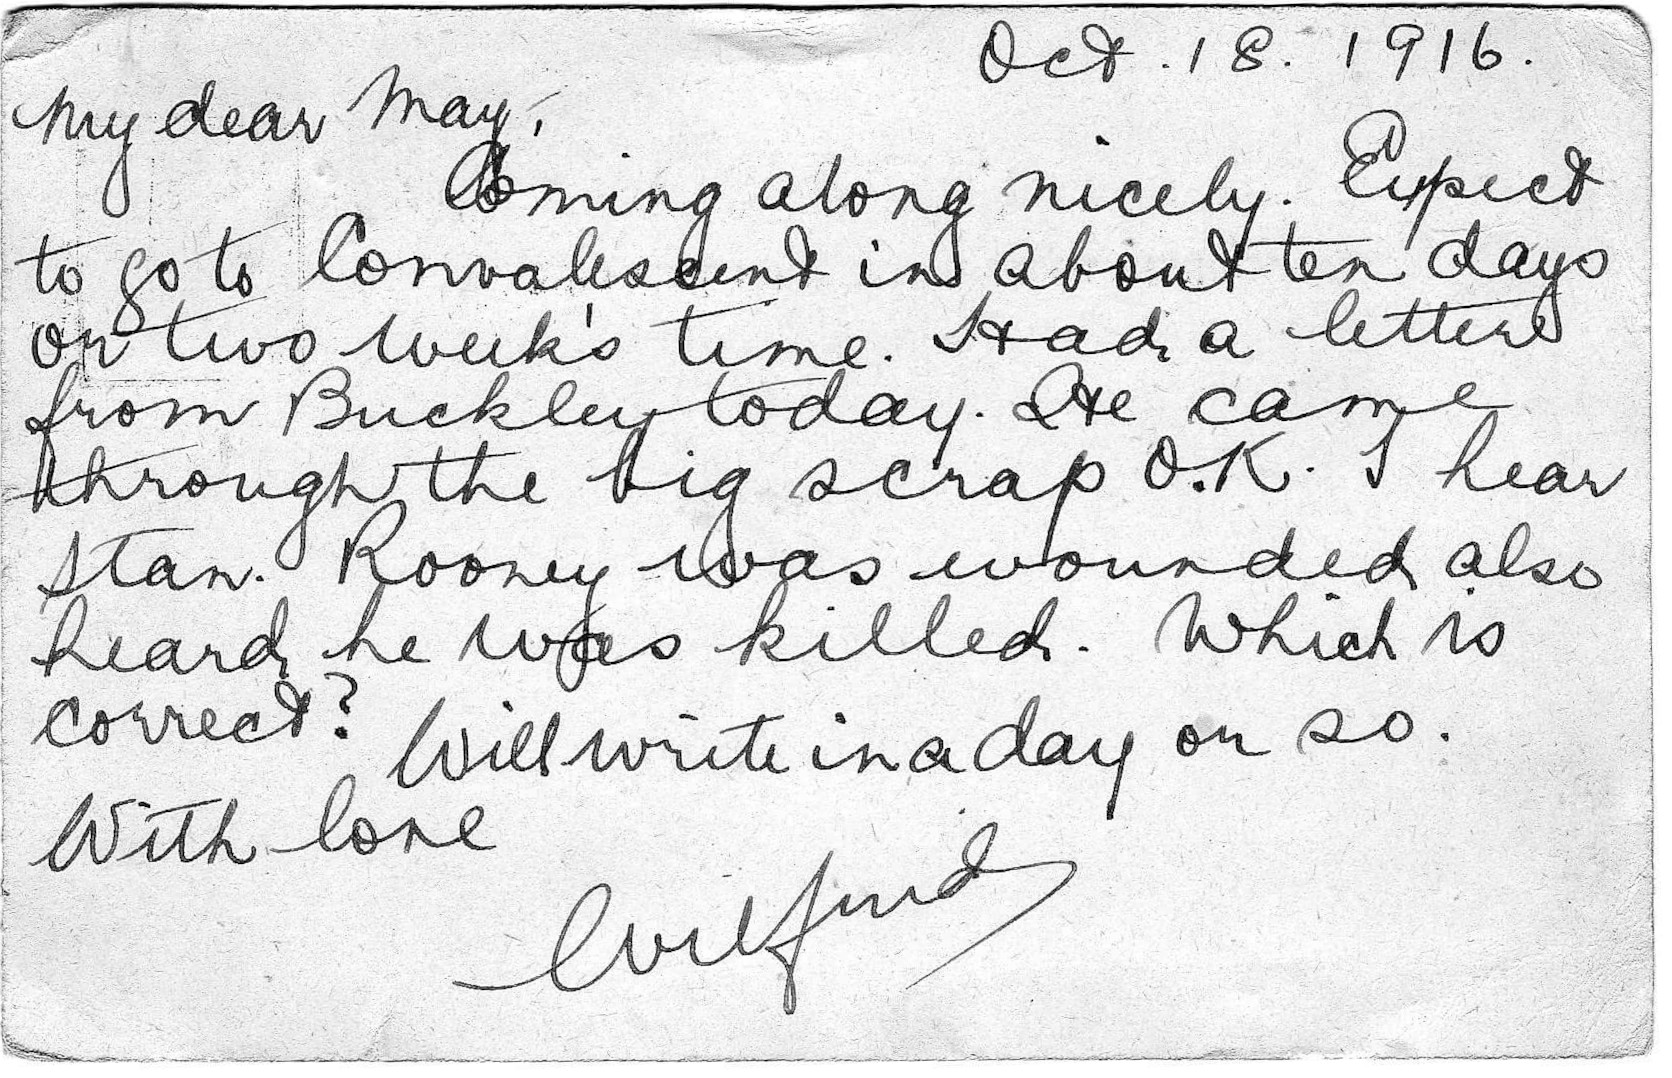 Oct. 18. 1916.
My dear May,
Coming along nicely. Expect
to go to Convalescent in about ten days
or two week's time. Had a letter
from Buckley today. He came
through the big scrap O.K. I hear
Stan. Rooney was wounded also
heard he was killed. Which is
correct?
Will write in a day or so.
With love
Wilfrid